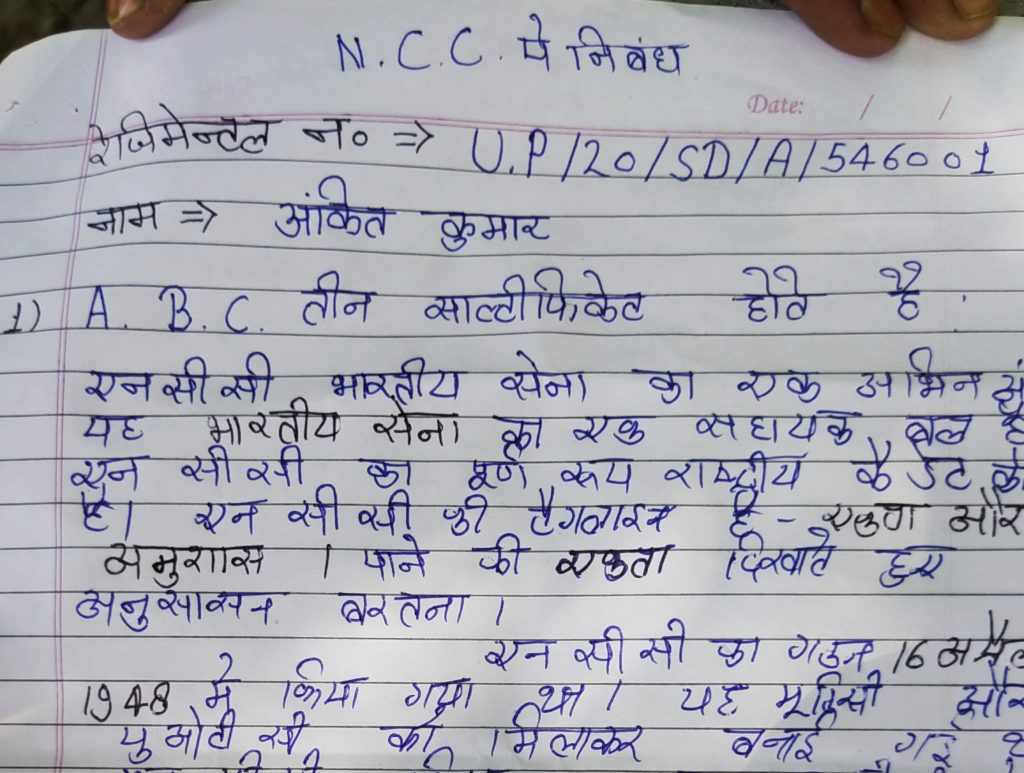 N.C.C. पे निबंध
Date: / /
रेजिमेन्टल न० => U.P/20/SD/A/546001
नाम => अंकित कुमार
1) A. B. C. तीन साल्टीफिकेट होते है .
एन सी सी भारतीय सेना का एक अभिन
यह भारतीय सेना का एक सहायक बल है
एन सी सी का पूर्ण रूप राष्ट्रीय कैडेट
है। एन सी सी की टैगलाइन है - एकता और
अनुशास । पाने की एकता दिखाते हुए
अनुसासन बरतना ।
एन सी सी का गठन 16 अप्रैल
1948 मे किया गया था। यह और
यु ओटी सी को मिलाकर बनाई गई